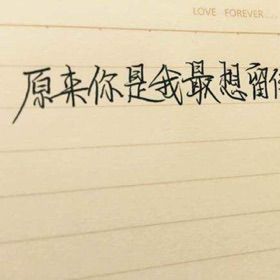 LOVE FOREVER...
原来你是我最想留